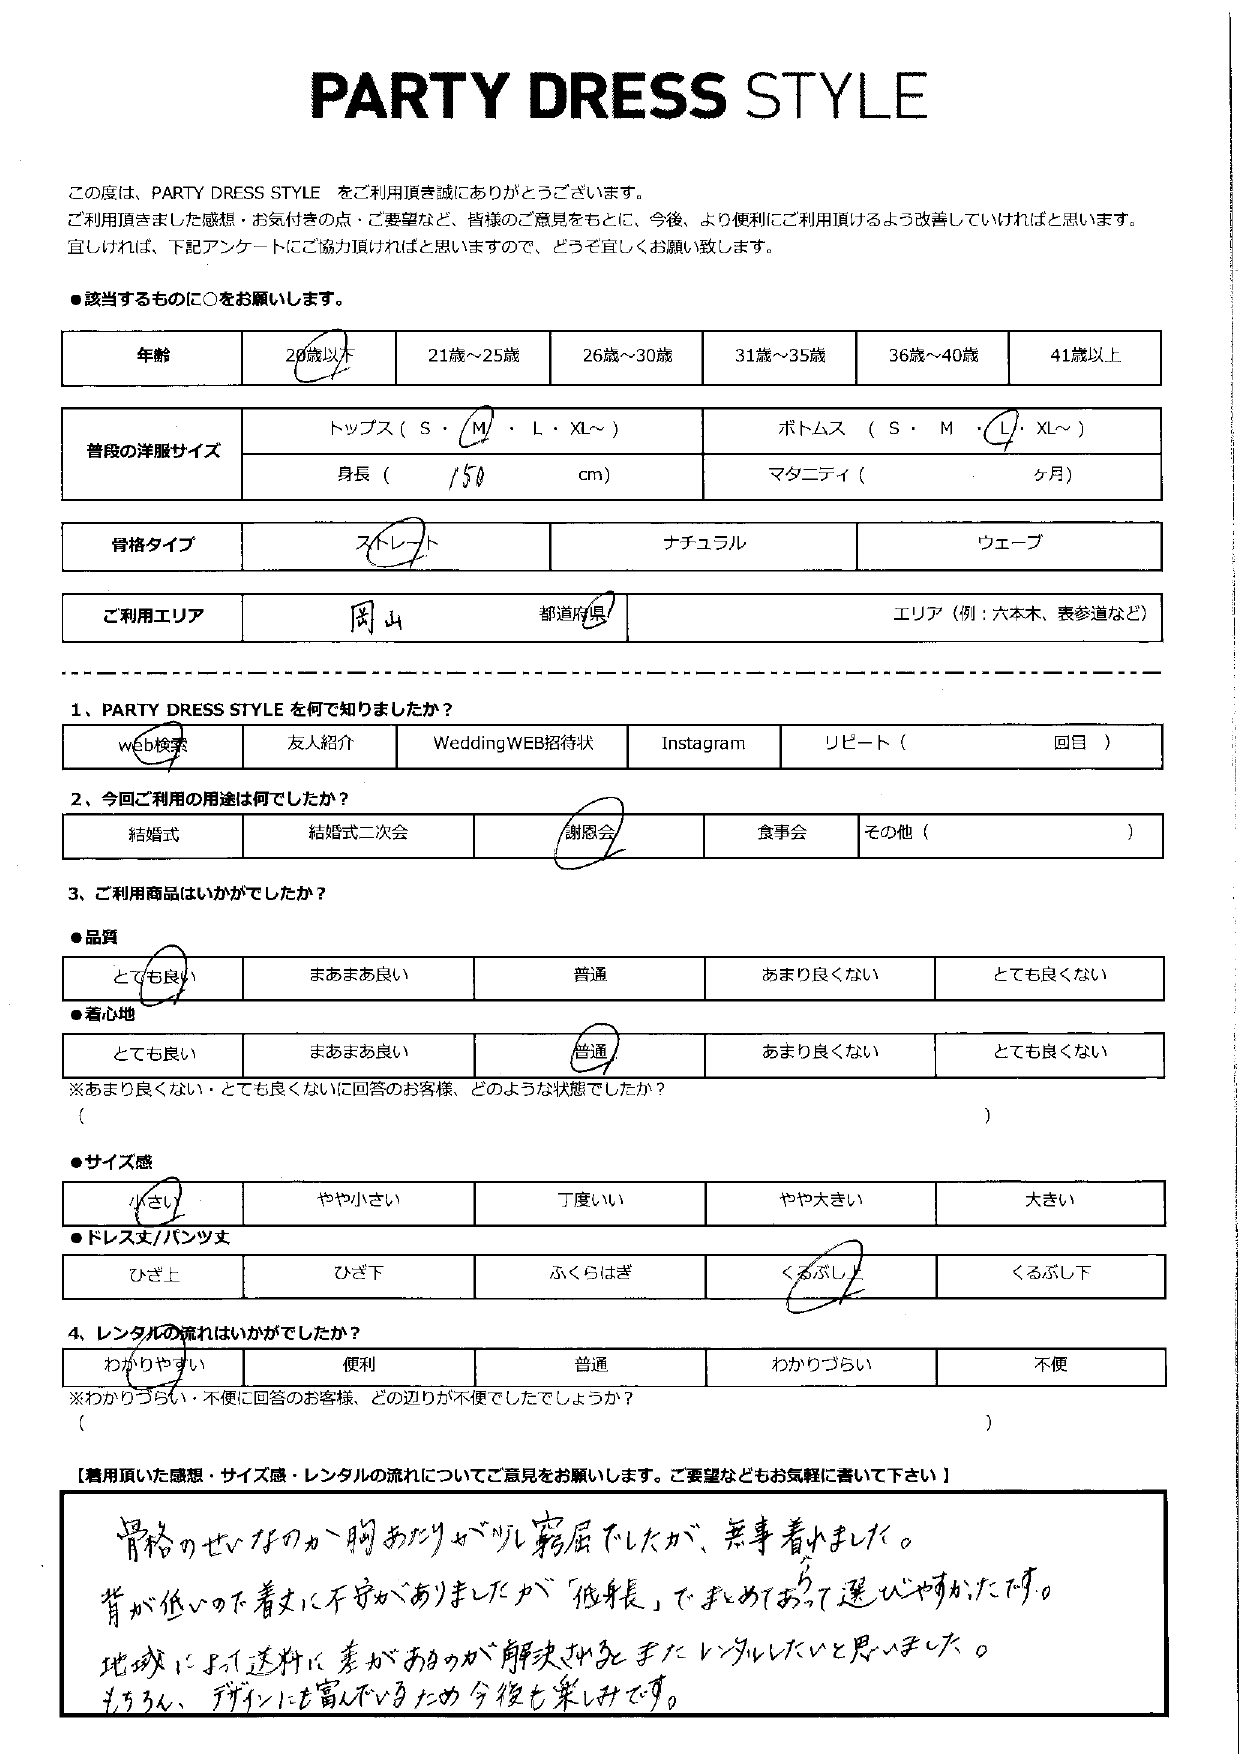 PARTY DRESS STYLE
この度は、PARTY DRESS STYLE をご利用頂き誠にありがとうございます。
ご利用頂きました感想・お気付きの点・ご要望など、皆様のご意見をもとに、今後、より便利にご利用頂けるよう改善していければと思います。
宜しければ、下記アンケートにご協力頂ければと思いますので、どうぞ宜しくお願い致します。
●該当するものに○をお願いします。
年齢 20歳以下 21歳～25歳 26歳～30歳 31歳～35歳 36歳～40歳 41歳以上
普段の洋服サイズ
トップス ( S ・ M ・ L ・ XL～ ) ボトムス ( S ・ M ・ L ・ XL～ )
身長 ( 150 cm) マタニティ ( ヶ月)
骨格タイプ ストレート ナチュラル ウェーブ
ご利用エリア 岡山 都道府県 エリア（例：六本木、表参道など）
1、PARTY DRESS STYLE を何で知りましたか？
web検索 友人紹介 WeddingWEB招待状 Instagram リピート ( 回目 )
2、今回ご利用の用途は何でしたか？
結婚式 結婚式二次会 謝恩会 食事会 その他 ( )
3、ご利用商品はいかがでしたか？
●品質
とても良い まあまあ良い 普通 あまり良くない とても良くない
●着心地
とても良い まあまあ良い 普通 あまり良くない とても良くない
※あまり良くない・とても良くないに回答のお客様、どのような状態でしたか？
( )
●サイズ感
小さい やや小さい 丁度いい やや大きい 大きい
●ドレス丈/パンツ丈
ひざ上 ひざ下 ふくらはぎ くるぶし上 くるぶし下
4、レンタルの流れはいかがでしたか？
わかりやすい 便利 普通 わかりづらい 不便
※わかりづらい・不便に回答のお客様、どの辺りが不便でしたでしょうか？
( )
【着用頂いた感想・サイズ感・レンタルの流れについてご意見をお願いします。ご要望などもお気軽に書いて下さい 】
骨格のせいなのか胸あたりが少し窮屈でしたが、無事着れました。
背が低いので着丈に不安がありましたが「低身長」でまとめてあって選びやすかったです。
地域によって送料に差があるのが解決されるとまたレンタルしたいと思いました。
もちろん、デザインにも富んでいるため今後も楽しみです。